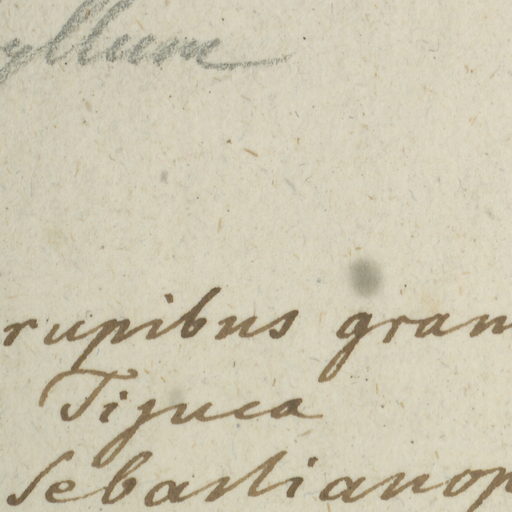 yllum
rupibus gran
Tijuca
Sebastianop